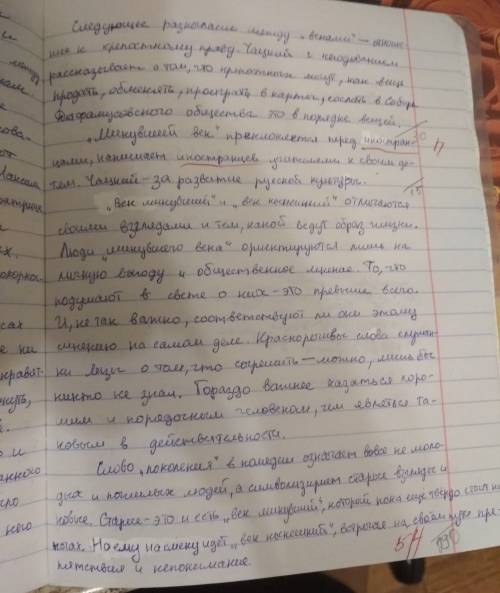 Следующее разногласие между „веками“ — отноше-
ние к крепостному праву. Чацкий с негодованием
рассказывает о том, что крепостных могут, как вещи
продать, обменять, проиграть в карты, сослать в Сибирь
Для фамусовского общества это в порядке вещей.
„Минувший век“ преклоняется перед иностран-
цами, нанимает иностранцев учителями к своим де-
тям. Чацкий - за развитие русской культуры.
„Век минувший“ и „век нынешний“ отличаются
своими взглядами и тем, какой ведут образ жизни.
Люди „минувшего века“ ориентируются лишь на
личную выгоду и общественное мнение. То, что
подумают в свете о них - это превыше всего.
И, не так важно, соответствуют ли они этому
мнению на самом деле. Красноречивы слова служан-
ки Лизы о том, что согрешить — можно, лишь бы
никто не знал. Гораздо важнее казаться хоро-
шим и порядочным человеком, чем являться та-
ковым в действительности.
Слово „поколения“ в комедии означает вовсе не моло-
дых и пожилых людей, а символизирует старые взгляды и
новые. Старые - это и есть „век минувший“, который пока ещё твердо стоит на
ногах. Но ему на смену идёт „век нынешний“, встречая на своём пути пре-
пятствия и непонимание.